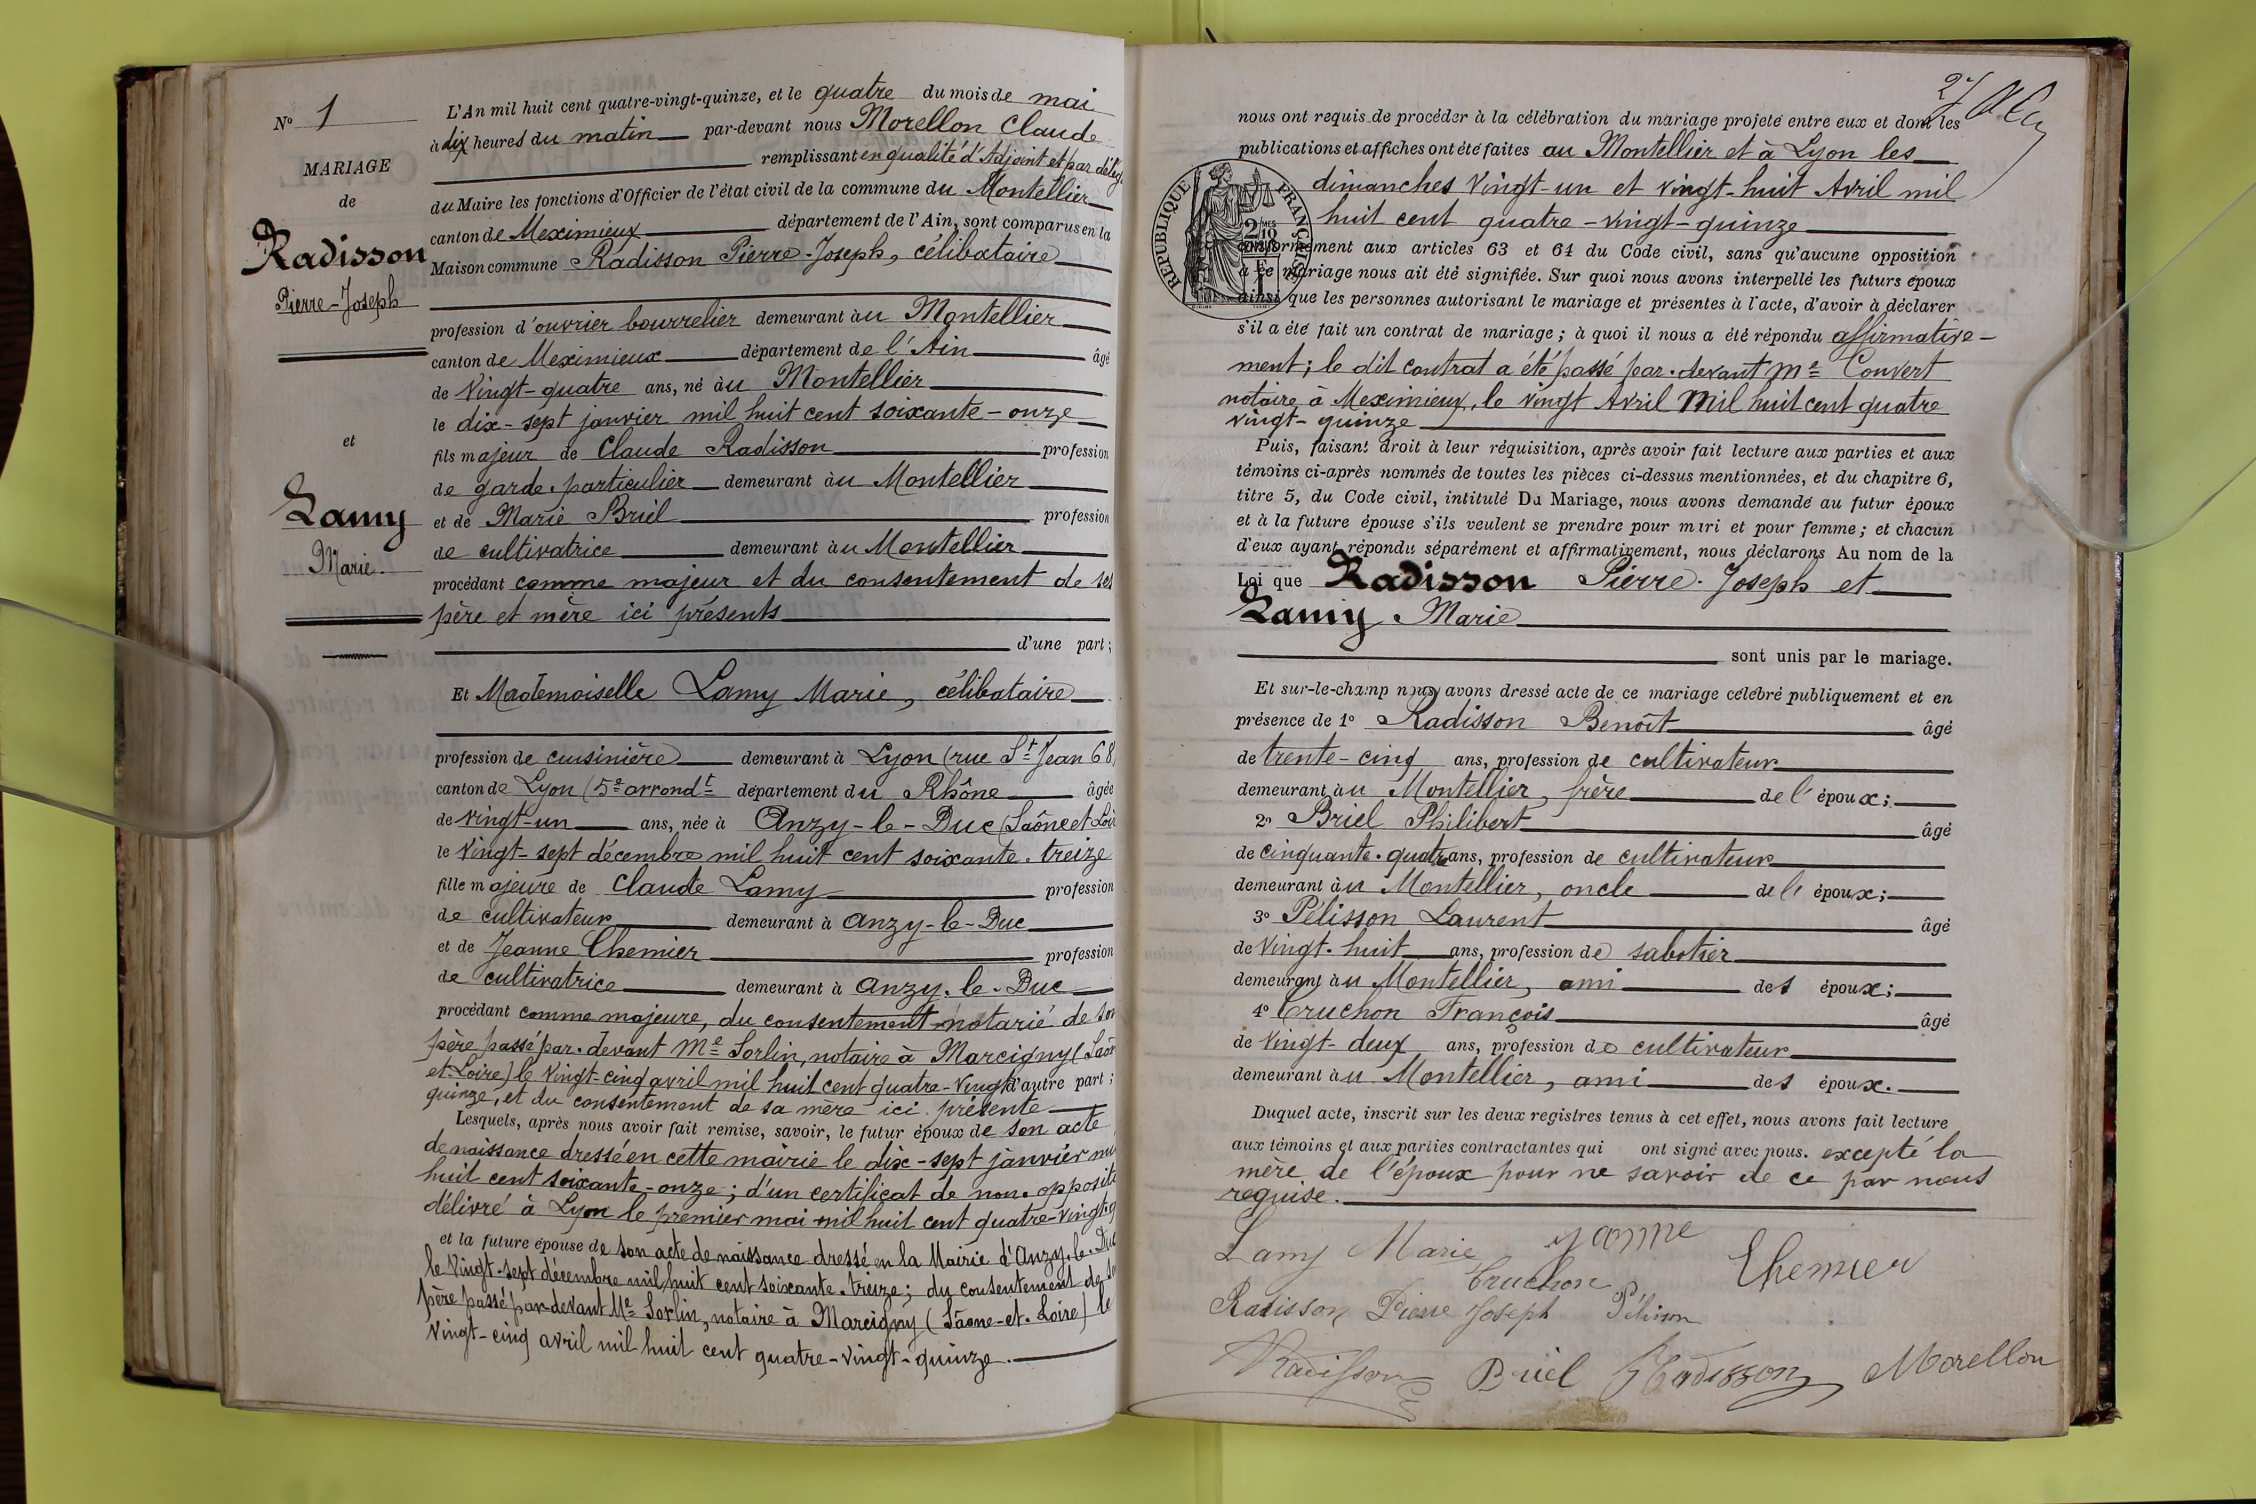 N° 1
MARIAGE
de
Radisson
Pierre-Joseph
et
Lamy
Marie.
L'An mil huit cent quatre-vingt-quinze, et le quatre du mois de mai
à dix heures du matin par-devant nous Morellon Claude
remplissant en qualité d'Adjoint et par délég.
du Maire les fonctions d'Officier de l'état civil de la commune du Montellier
canton de Meximieux département de l'Ain, sont comparus en la
Maison commune Radisson Pierre-Joseph, célibataire
profession d'ouvrier bourrelier demeurant au Montellier
canton de Meximieux département de l'Ain âgé
de Vingt-quatre ans, né au Montellier
le dix-sept janvier mil huit cent soixante-onze
fils majeur de Claude Radisson profession
de garde-particulier demeurant au Montellier
et de Marie Briel profession
de cultivatrice demeurant au Montellier
procédant comme majeur et du consentement de ses
père et mère ici présents
d'une part;
Et Mademoiselle Lamy Marie, célibataire
profession de cuisinière demeurant à Lyon (rue St Jean 68)
canton de Lyon (5e arrondt département du Rhône âgée
de vingt-un ans, née à Anzy-le-Duc (Saône et Loir
le Vingt-sept décembre mil huit cent soixante-treize
fille majeure de Claude Lamy profession
de cultivateur demeurant à Anzy-le-Duc
et de Jeanne Chemier profession
de cultivatrice demeurant à Anzy-le-Duc
procédant comme majeure, du consentement notarié de son
père passé par-devant Me Sorlin, notaire à Marcigny (Saôn
et-Loire) le Vingt-cinq avril mil huit cent quatre-vingt d'autre part;
quinze, et du consentement de sa mère ici présente
Lesquels, après nous avoir fait remise, savoir, le futur époux de son acte
de naissance dressé en cette mairie le dix-sept janvier mil
huit cent soixante-onze; d'un certificat de non-oppositi
délivré à Lyon le premier mai mil huit cent quatre-vingt-q
et la future épouse de son acte de naissance dressé en la Mairie d'Anzy-le-Duc
le Vingt-sept décembre mil huit cent soixante-treize; du consentement de so
père passé par-devant Me Sorlin, notaire à Marcigny (Sâone-et-Loire) le
Vingt-cinq avril mil huit cent quatre-vingt-quinze.
27
nous ont requis de procéder à la célébration du mariage projeté entre eux et dont les
publications et affiches ont été faites au Montellier et à Lyon les
dimanches Vingt-un et vingt-huit Avril mil
huit cent quatre-vingt-quinze
RÉPUBLIQUE FRANÇAISE
conformément aux articles 63 et 64 du Code civil, sans qu'aucune opposition
à ce mariage nous ait été signifiée. Sur quoi nous avons interpellé les futurs époux
ainsi que les personnes autorisant le mariage et présentes à l'acte, d'avoir à déclarer
s'il a été fait un contrat de mariage; à quoi il nous a été répondu affirmative-
ment; le dit contrat a été passé par-devant Me Convert
notaire à Meximieux, le vingt Avril Mil huit cent quatre
vingt-quinze
Puis, faisant droit à leur réquisition, après avoir fait lecture aux parties et aux
témoins ci-après nommés de toutes les pièces ci-dessus mentionnées, et du chapitre 6,
titre 5, du Code civil, intitulé Du Mariage, nous avons demandé au futur époux
et à la future épouse s'ils veulent se prendre pour mari et pour femme; et chacun
d'eux ayant répondu séparément et affirmativement, nous déclarons Au nom de la
Loi que Radisson Pierre-Joseph et
Lamy Marie
sont unis par le mariage.
Et sur-le-champ nous avons dressé acte de ce mariage célébré publiquement et en
présence de 1° Radisson Benoît âgé
de trente-cinq ans, profession de cultivateur
demeurant au Montellier, frère de l'époux;
2° Briel Philibert âgé
de cinquante-quatre ans, profession de cultivateur
demeurant au Montellier, oncle de l'époux;
3° Pélisson Laurent âgé
de Vingt-huit ans, profession de sabotier
demeurant au Montellier, ami des époux;
4° Cruchon François âgé
de Vingt-deux ans, profession de cultivateur
demeurant au Montellier, ami des époux.
Duquel acte, inscrit sur les deux registres tenus à cet effet, nous avons fait lecture
aux témoins et aux parties contractantes qui ont signé avec nous. excepté la
mère de l'époux pour ne savoir de ce par nous
requise.
Lamy Marie
Chemier
Cruchon
Radisson Pierre Joseph Pélisson
Radisson Briel Radisson Morellon